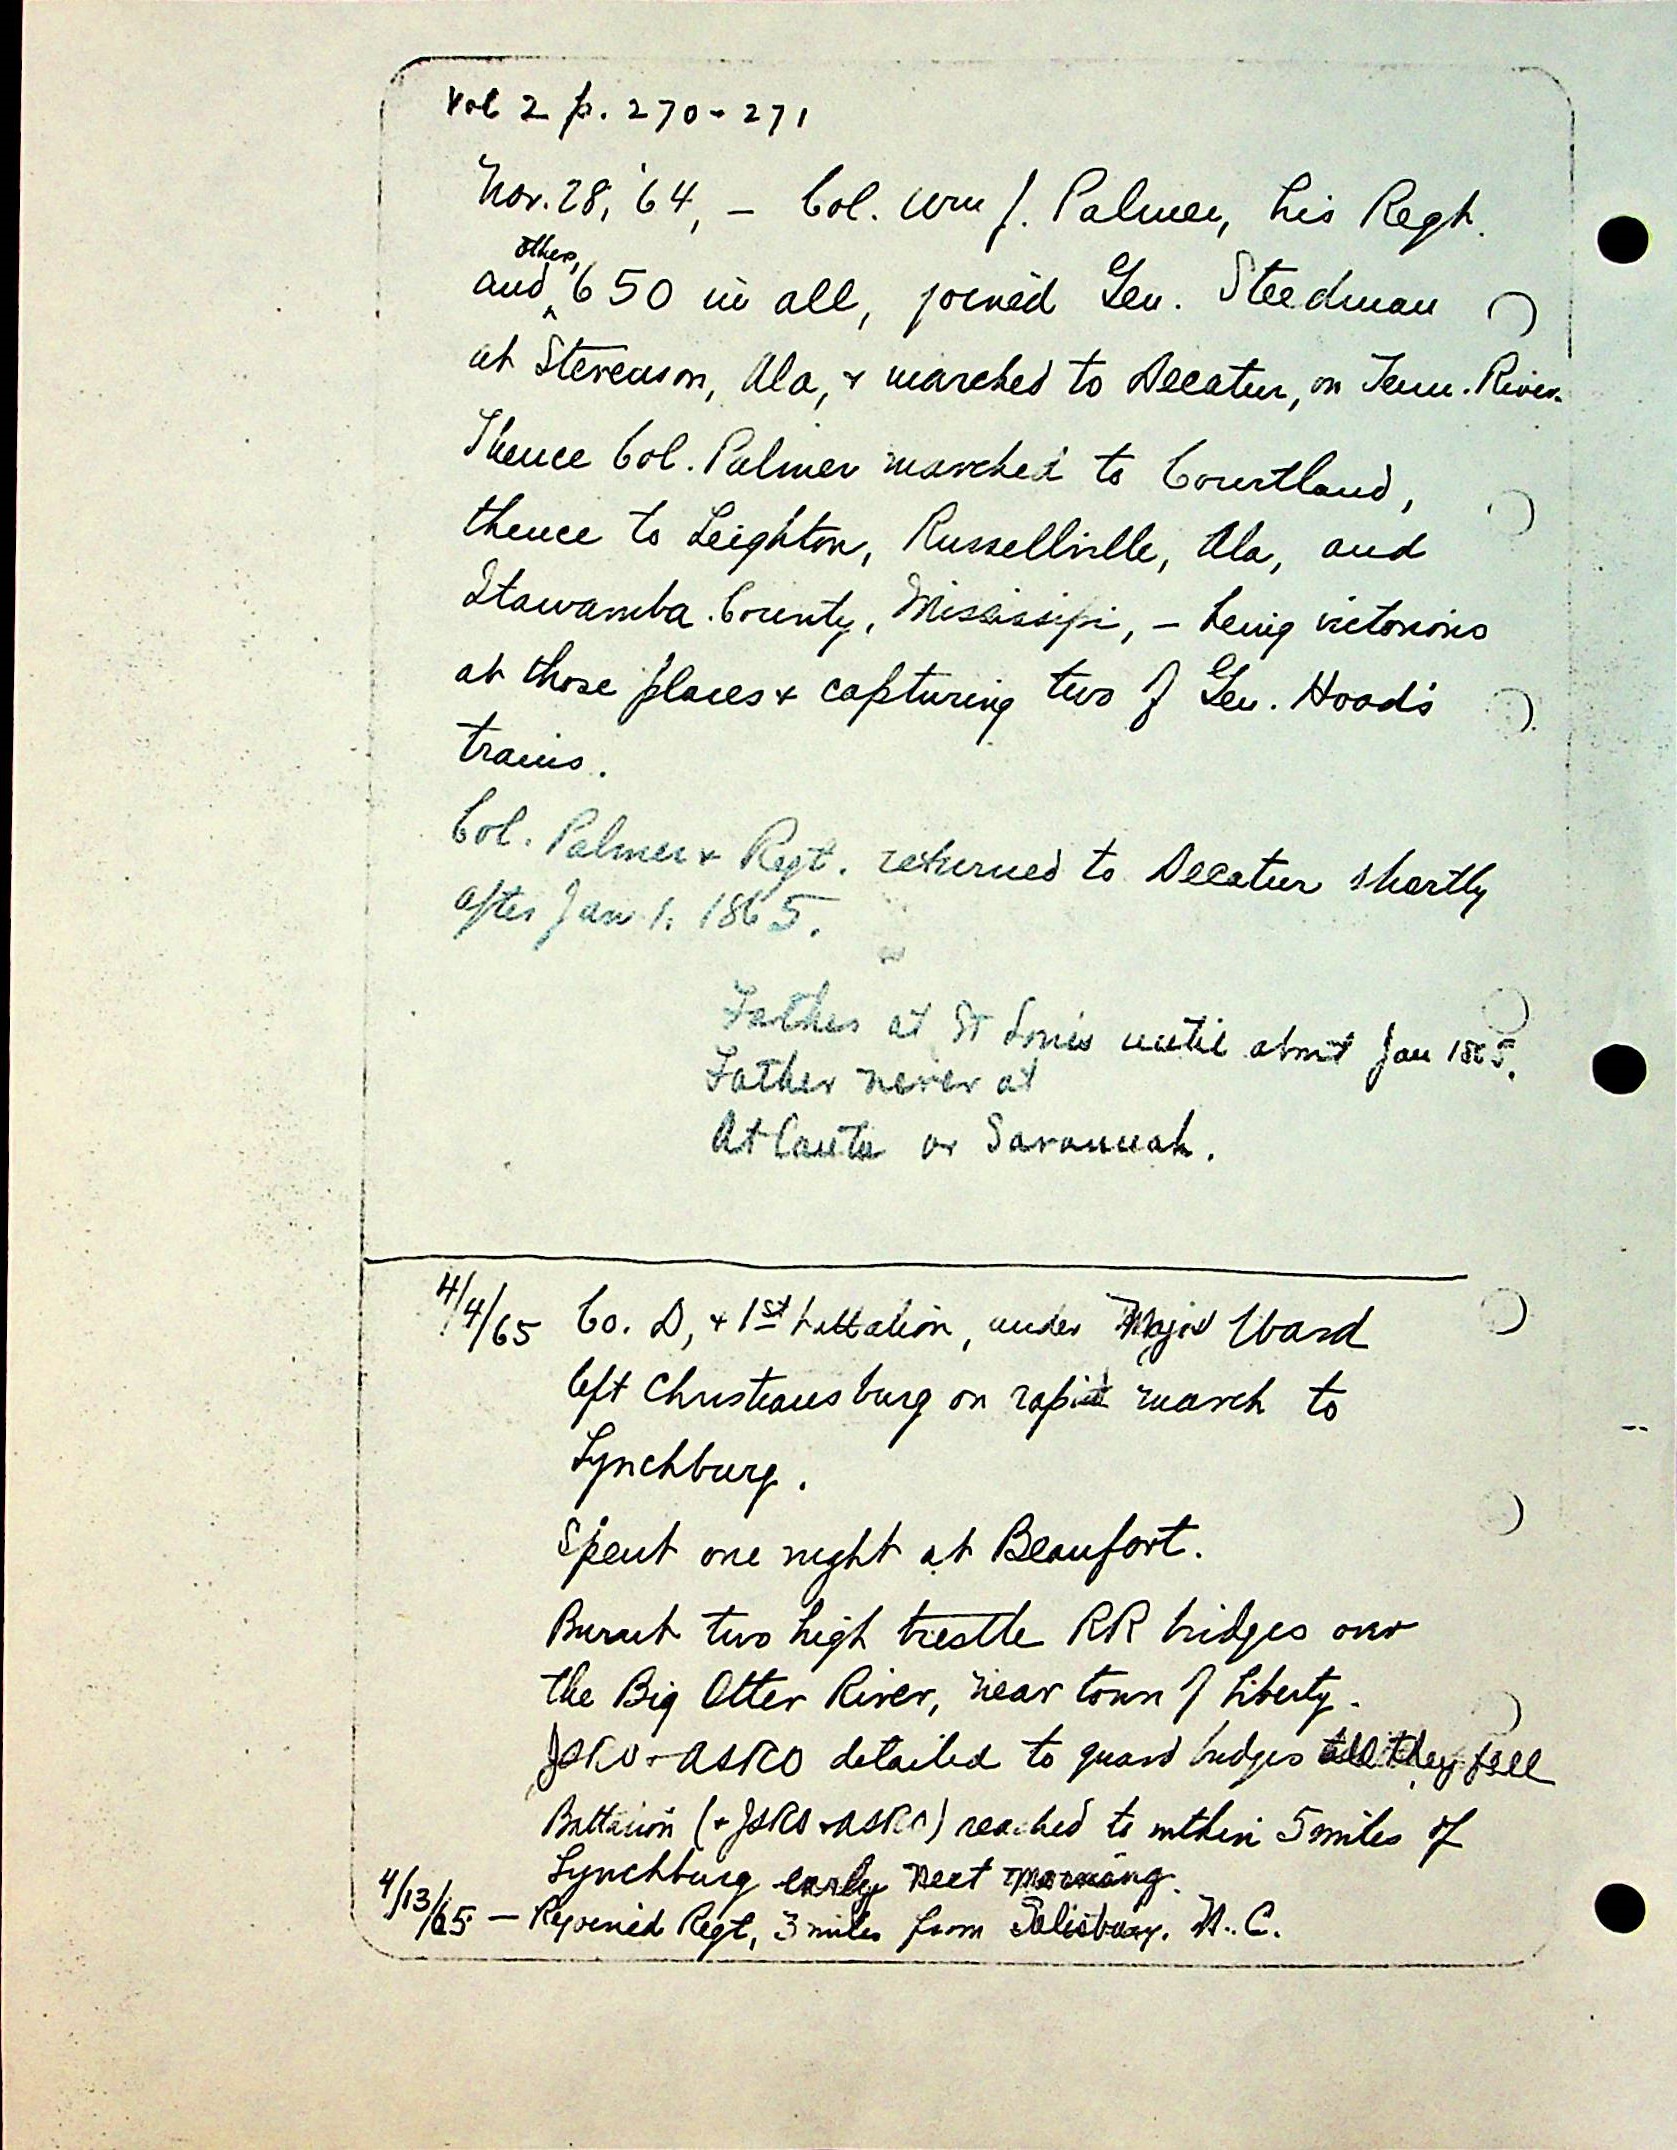 Vol 2 p. 270-271
Nov. 28, '64, - Col. Wm J. Palmer, his Regt.
and ^others, 650 in all, joined Gen. Steedman
at Stevenson, Ala, & marched to Decatur, on Tenn. River.
Thence Col. Palmer marched to Courtland,
thence to Leighton, Russellville, Ala, and
Itawamba County, Mississipi, - being victorious
at those places & capturing two of Gen. Hood's
trains.
Col. Palmer & Regt. returned to Decatur shortly
after Jan 1. 1865.
Father at St Louis until about Jan 1865.
Father never at
Atlanta or Savannah.
4/4/65 Co. D, & 1st battalion, under Major Ward
left Christiansburg on rapid march to
Lynchburg.
Spent one night at Beaufort.
Burnt two high trestle RR bridges over
the Big Otter River, near town of Liberty.
JSRO & ASRO detailed to guard bridges till they fell
Battalion (& JSRO & ASRO) reached to within 5 miles of
Lynchburg early next morning.
4/13/65 - Rejoined Regt, 3 miles from Salisbury. N.C.